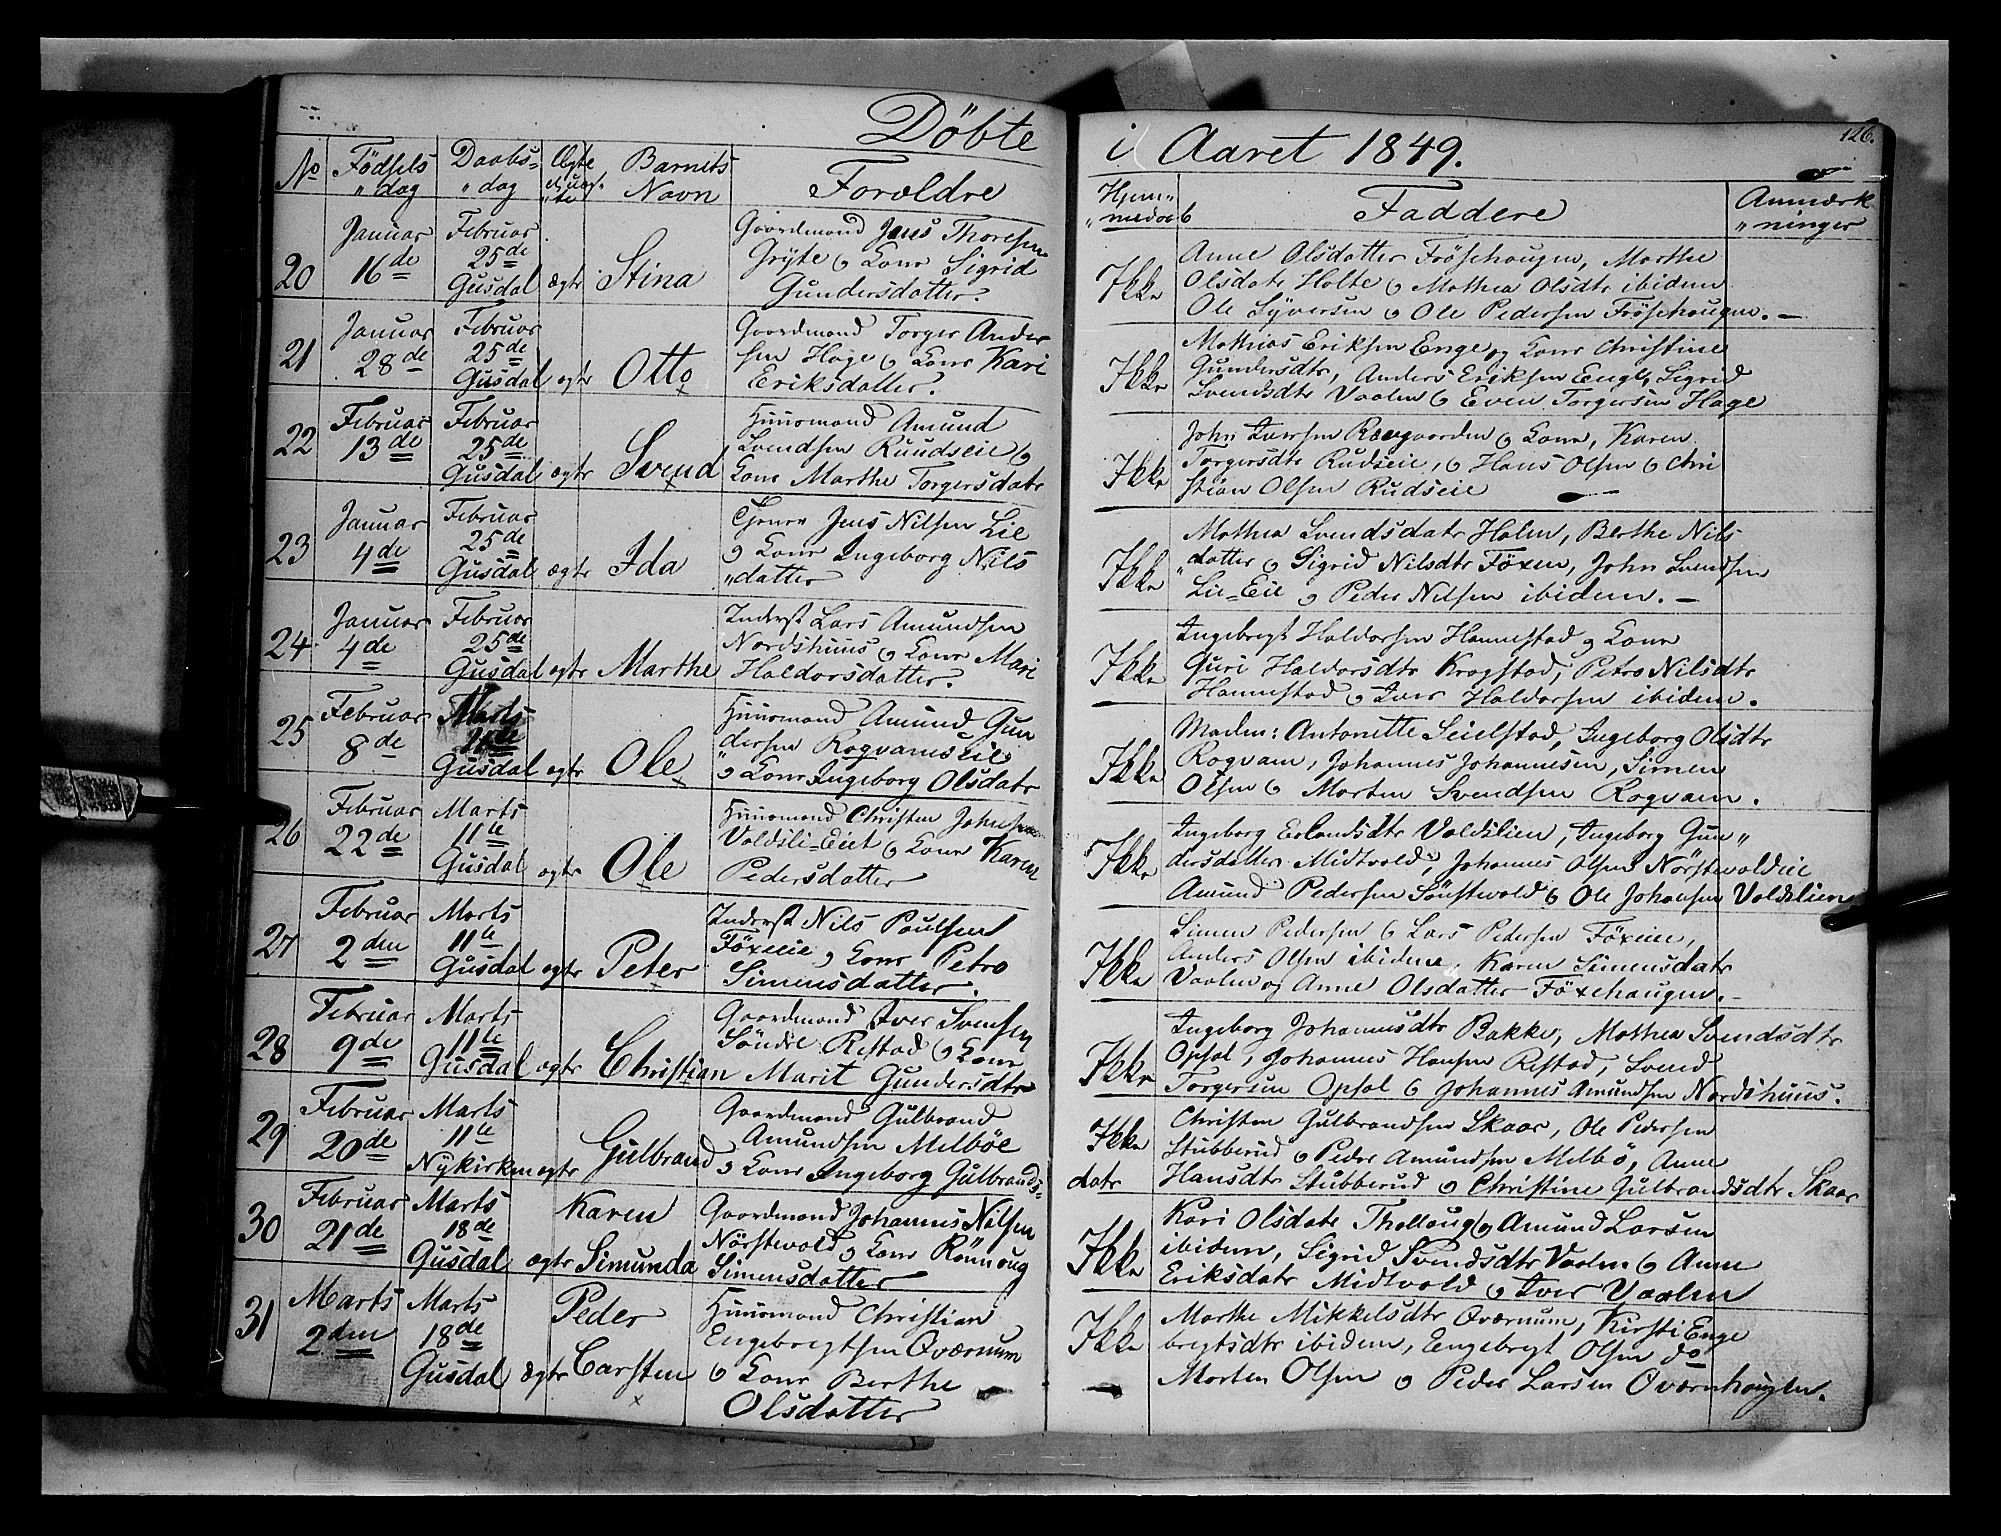 Döbte
i Aaret 1849.
126.
No Födsels "dag Daabs= "dag Ægte Barnets Navn Forældre
Faddere Anmærk "ninger
20 Januar 16de Februar 25de Gusdal ægte Stina
Gaardmand Jens Thoresen
Gryte og Kone Sigrid
Gundersdatter.
Ikke
Anne Olsdatter Frösehaugen, Marthe
Olsdatr Holte og Mathea Olsdtr ibidem
Ole Syversen og Ole Pedersen Frösehaugen. —
21 Januar 28de Februar 25de Gusdal ægte Otto
Gaardmand Torger Ander
sen Hage og Kone Kari
Eriksdatter.
Ikke
Mathias Eriksen Enge og Kone Christine
Gundersdtr, Anders Eriksen Enge, Sigrid
Svendsdtr Vaalen og Even Torgersen Hage
22 Februar 13de Februar 25de Gusdal ægte Svend
Huusmand Amund
Svendsen Ruudseie og
Kone Marthe Torgersdatr
Ikke
John Iversen og Kone, Karen
Torgersdtr Rudseie, og Hans Olsen og Chri
stian Olsen Rudseie —
23 Januar 4de Februar 25de Gusdal ægte Ida
Jens Nilsen Lie
og Kone Ingeborg Nils
"datter
Ikke
Mathea Svendsdatr Holen, Berthe Nils
"datter og Sigrid Nilsdtr Föxen, John Svendsen
Lie=Eie og Peder Nilsen ibidem. —
24 Januar 4de Februar 25de Gusdal ægte Marthe
Inderst Lars Amundsen
Nordshuus og Kone Mari
Haldorsdatter.
Ikke
Ingebregt Haldorsen Hannestad og Kone
Guri Haldorsdtr Krogstad, Petro Nilsdtr
Hannestad og Iver Haldorsen ibidem.
25 Februar 8de Marts 11te Gusdal ægte Ole
Huusmand Amund Gun
dersen Rogvamseie
"og Kone Ingeborg Olsdatr
Ikke
Madm: Antonette Seielstad, Ingeborg Olsdtr
Rogvam, Johannes Johannesen, Simen
Olsen og Morten Svendsen Rogvam.
26 Februar 22de Marts 11te Gusdal ægte Ole
Huusmand Christen Johnsen
Voldsli=Eiet og Kone Karen
Pedersdatter
Ikke
Ingeborg Erlandsdtr Voldslien, Ingeborg Gun"
dersdatter Midtvold, Johannes Olsen Nörstevoldeie
Amund Pedersen Sörstevold og Ole Johansen Voldslien
27 Februar 2den Marts 11te Gusdal ægte Peter
Inderst Nils Paulsen
Föxeie og Kone Petro
Simensdatter.
Ikke
Simen Pedersen og Lars Pedersen Föxeie,
Anders Olsen ibidem, Karen Simensdatr
Vaalen og Anne Olsdatter Föxehaugen. —
28 Februar 9de Marts 11te Gusdal ægte Christian
Gaardmand Iver Svensen
Söndre Restad og Kone
Marit Gundersdtr
Ikke
Ingeborg Johannesdtr Bakke, Mathea Svendsdtr
Opsal, Johannes Hansen Restad, Svend
Torgersen Opsal og Johannes Amundsen Nordshuus.
29 Februar 20de Marts 11te Nykirken ægte Gulbrand
Gaardmand Gulbrand
Amundsen Melböe
og Kone Ingeborg Gulbrands=
datr
Ikke
Christen Gulbrandsen Skaar, Ole Pedersen
Stubberud og Peder Amundsen Melbö, Anne
Hansdtr Stubberud og Christine Gulbrandsdtr Skaar
30 Februar 21de Marts 18de Gusdal ægte Karen Simunda
Gaardmand Johannes Nilsen
Nörstevold og Kone Rönnoug
Simensdatter
Ikke
Kari Olsdatr Thollaug og Amund Larsen
ibidem, Sigrid Svendsdtr Vaalen og Anne
Eriksdatr Midtvold og Iver Vaalen
31 Marts 2den Marts 18de Gusdal ægte Peder Carsten
Huusmand Christian
Engebregtsen Qværnum
og Kone Berthe
Olsdatter
Ikke
Marthe Mikkelsdtr Qværnum, Kirsti Enge
bregtsdtr ibidem, Engebregt Olsen do
Morten Olsen og Peder Larsen Qværnhaugen.